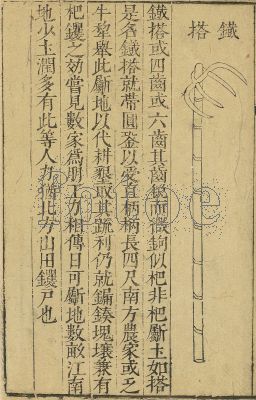 鐵搭
鐵搭或四齒或六齒其齒銳而微鉤似杷非杷劚土如搭
是名鐵搭就帶圓銎以受直柄柄長四尺南方農家或乏
牛犂舉此劚地以代耕墾取其疏利仍就塊壤兼有
杷钁之效嘗見數家爲朋工力相傳日可劚地數畝江南
地少土潤多有此等人力猶北方山田钁戶也